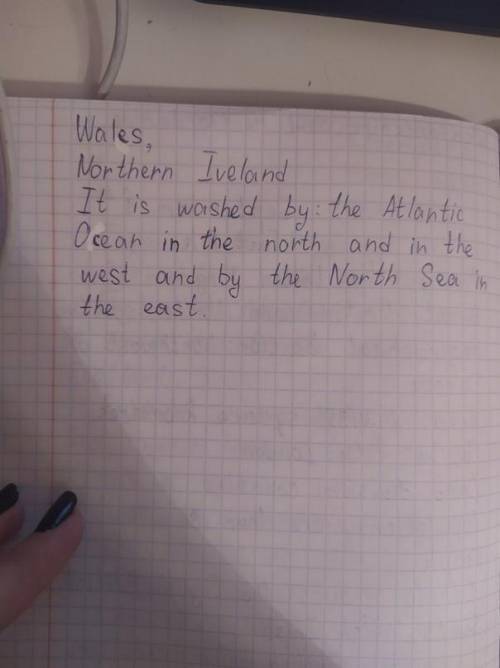 Wales,
Northern Iveland
It is washed by: the Atlantic
Ocean in the north and in the
west and by the North Sea in
the east.